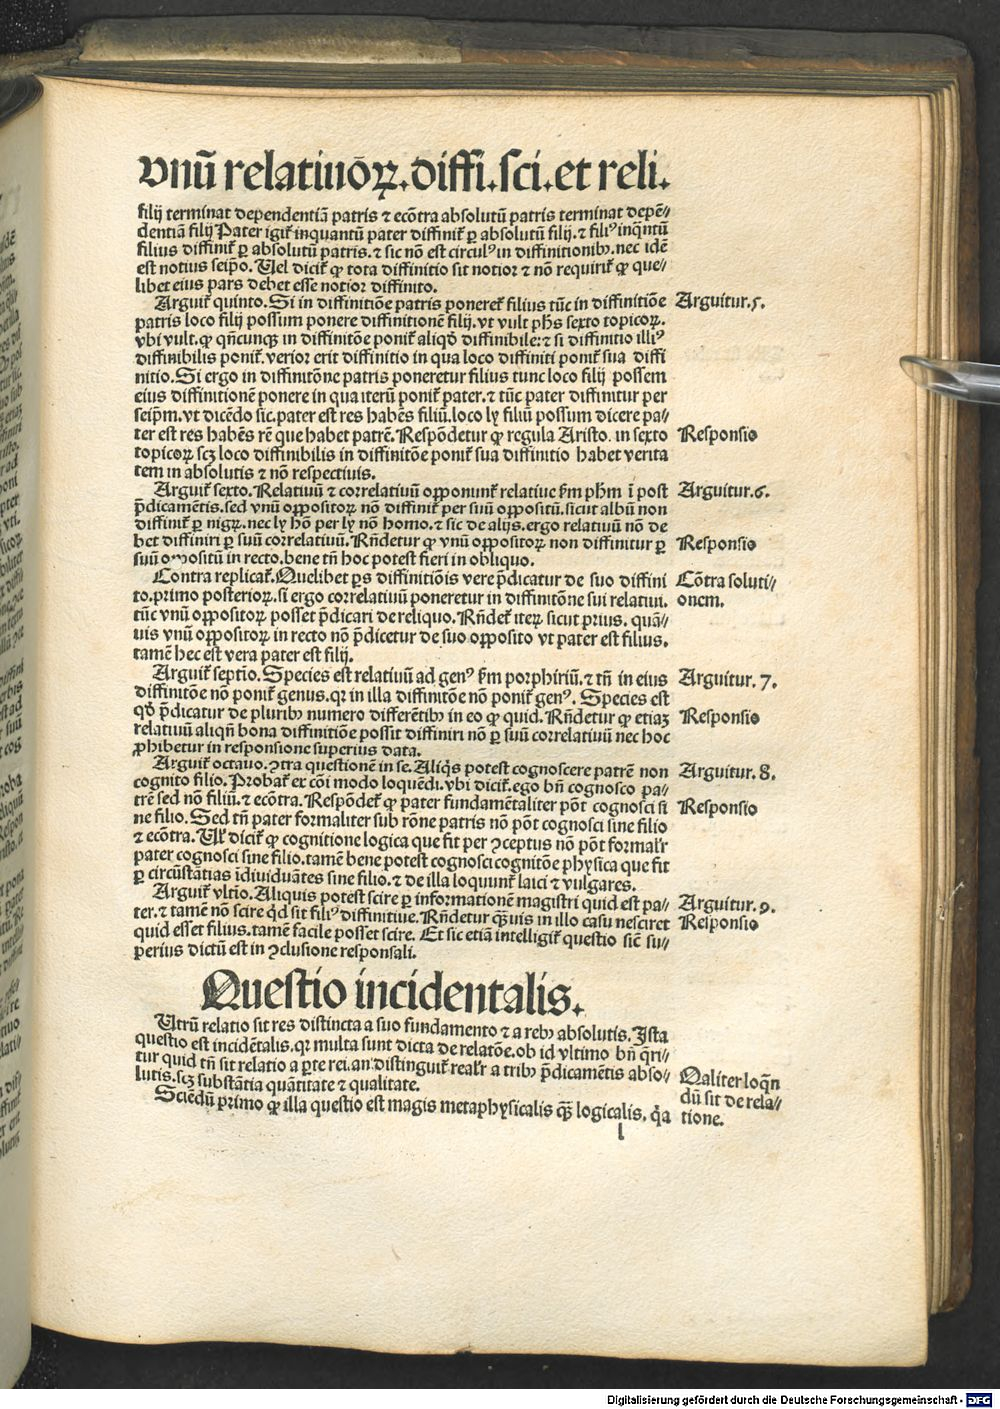 vnū relatiuōꝝ.diffi.sci.et reli.
filij terminat dependentiā patris ⁊ ecōtra absolutū patris terminat depē⸗
dentiā filij Pater igit᷑ inquantū pater diffinit᷑ ꝑ absolutū filij.⁊ fili⁹ inqntū
filius diffinit᷑ ꝑ absolutū patris.⁊ sic nō est circul⁹ in diffinitionibꝫ.nec idē
est notius seip̄o. Uel dicit᷑ ꝙ tota diffinitio sit notior ⁊ nō requirit᷑ ꝙ que⸗
libet eius pars debet esse notior diffinito.
Arguit᷑ quinto. Si in diffinitiōe patris poneret᷑ filius tūc in diffinitiōe
Arguitur.5.
patris loco filij possum ponere diffinitionē filij.vt vult ph̄s sexto topicoꝝ.
vbi vult.ꝙ qn̄cunqꝫ in diffinitōe ponit᷑ aliqd̄ diffinibile:⁊ si diffinitio illi⁹
diffinibilis ponit᷑.verior erit diffinitio in qua loco diffiniti ponit᷑ sua diffi
nitio.Si ergo in diffinitōne patris poneretur filius tunc loco filij possem
eius diffinitionē ponere in qua iterū ponit᷑ pater.⁊ tūc pater diffinitur per
seip̄m.vt dicēdo sic.pater est res habēs filiū.loco ly filiū possum dicere pa⸗
ter est res habēs rē que habet patrē.Respōdetur ꝙ regula Aristo. in sexto
Responsio
topicoꝝ scꝫ loco diffinibilis in diffinitōe ponit᷑ sua diffinitio habet verita
tem in absolutis ⁊ nō respectiuis.
Arguit᷑ sexto.Relatiuū ⁊ correlatiuū opponunt᷑ relatiue ẜm ph̄m ī post
Arguitur.6.
p̄dicamētis.sed vnū oppositoꝝ nō diffinit᷑ per suū oppositū.sicut albū non
diffinit᷑ ꝑ nigꝝ.nec ly hō per ly nō homo.⁊ sic de alijs.ergo relatiuū nō de
bet diffiniri ꝑ suū correlatiuū.Rn̄detur ꝙ vnū oppositoꝝ non diffinitur ꝑ
Responsio
suū oppositū in recto.bene tn̄ hoc potest fieri in obliquo.
Contra replicat᷑.Quelibet ꝑs diffinitiōis vere p̄dicatur de suo diffini
Cōtra soluti⸗
to.primo posterioꝝ.si ergo correlatiuū poneretur in diffinitōne sui relatiui.
onem.
tūc vnū oppositoꝝ posset p̄dicari de reliquo.Rn̄det᷑ iteꝝ sicut prius. quā⸗
uis vnū oppositoꝝ in recto nō p̄dicetur de suo opposito vt pater est filius.
tamē hec est vera pater est filij.
Arguit᷑ septīo.Species est relatiuū ad gen⁹ ẜm porphiriū.⁊ tn̄ in eius
Arguitur.7.
diffinitōe nō ponit᷑ genus.qꝛ in illa diffinitōe nō ponit᷑ gen⁹. Species est
qd̄ p̄dicatur de pluribꝫ numero differētibꝫ in eo ꝙ quid.Rn̄detur ꝙ etiaꝫ
Responsio
relatiuū aliqn̄ bona diffinitiōe possit diffiniri nō ꝑ suū correlatiuū nec hoc
ꝓhibetur in responsione superius data.
Arguit᷑ octauo.ↄtra questionē in se.Aliqs potest cognoscere patrē non
Arguitur.8.
cognito filio.Probat᷑ ex cōi modo loquēdi.vbi dicit᷑.ego bn̄ cognosco pa⸗
trē sed nō filiū.⁊ ecōtra.Respōdet᷑ ꝙ pater fundamētaliter pōt cognosci si
Responsio
ne filio.Sed tn̄ pater formaliter sub rōne patris nō pōt cognosci sine filio
⁊ ecōtra.Ul᷑ dicit᷑ ꝙ cognitione logica que fit per ↄceptus nō pōt formalr̄
pater cognosci sine filio.tamē bene potest cognosci cognitōe physica que fit
ꝑ circūstātias īdiuiduātes sine filio.⁊ de illa loquunt᷑ laici ⁊ vulgares.
Arguit᷑ vltīo.Aliquis potest scire ꝑ informationē magistri quid est pa⸗
Arguitur.9.
ter.⁊ tamē nō scire qd sit fili⁹ diffinitiue.Rn̄detur qꝫuis in illo casu nesciret
Responsio
quid esset filius.tamē facile posset scire. Et sic etiā intelligit᷑ questio sic̄ su⸗
perius dictū est in ↄclusione responsali.
Questio incidentalis.
Utrū relatio sit res distincta a suo fundamento ⁊ a rebꝫ absolutis.Ista
questio est incidētalis.qꝛ multa sunt dicta de relatōe.ob id vltimo bn̄ q̄ri⸗
tur quid tn̄ sit relatio a ꝑte rei.an distinguit᷑ realr̄ a tribꝫ p̄dicamētis abso⸗
lutis.scꝫ substātia quātitate ⁊ qualitate.
Qaliter loqn̄
dū sit de rela⸗
Sciēdū primo ꝙ illa questio est magis metaphysicalis qꝫ logicalis, q̄a
tione.
l
Digitalisierung gefördert durch die Deutsche Forschungsgemeinschaft - DFG